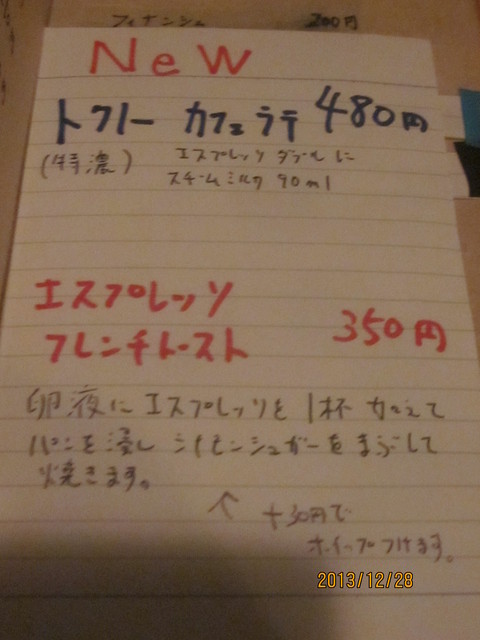 フィナンシェ 200円
New
トクノー カフェラテ 480円
(特濃) エスプレッソ ダブルに
スチームミルク 90ml
エスプレッソ
フレンチトースト 350円
卵液にエスプレッソを 1杯 加えて
パンを浸し シナモンシュガーをまぶして
焼きます。
↑ +30円で
ホイップつけます。
2013/12/28